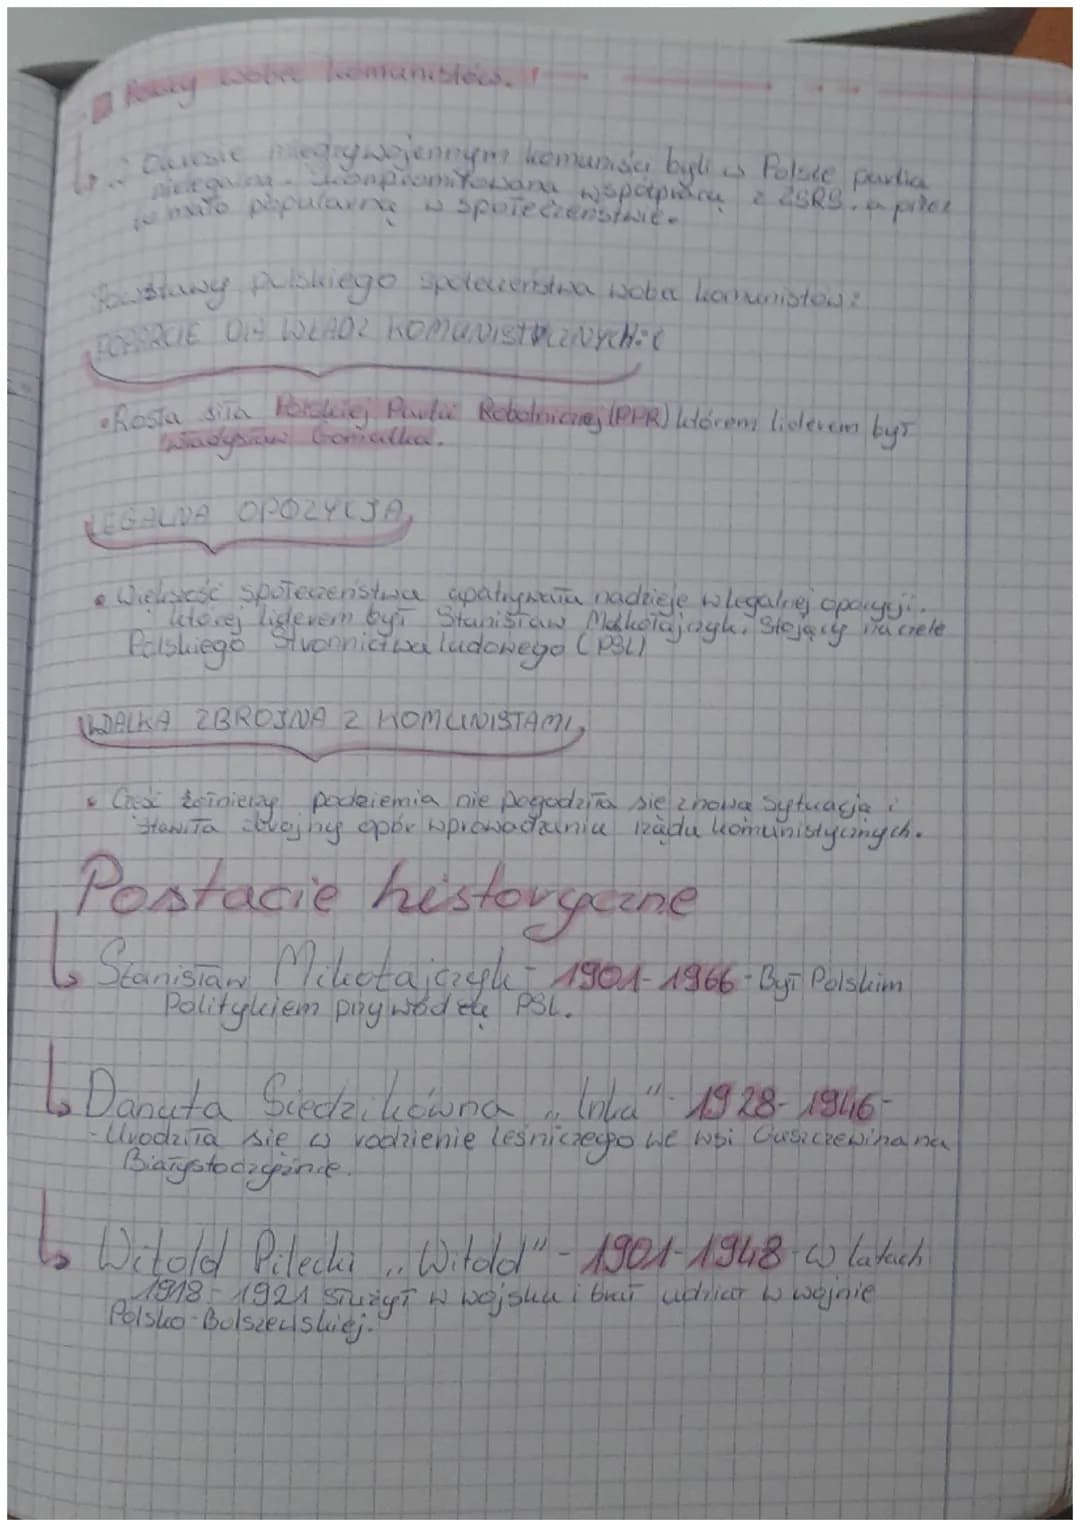 Polacy wobec komunistów.
W okresie międzywojennym komuniści byli w Polsce partia
nielegalną. skompromitowana współpracą z ZSRS. a przez
to mało popularną w społeczeństwie.
Powstawy polskiego społeczeństwa wobec komunistów:
POPARCIE DLA WŁADZ KOMUNISTYCZNYCH:
• Rosła siła Polskiej Partii Robotniczej (PPR) którem liderem był
Władysław Gomułka.
LEGALNA OPOZYCJA
• Większość społeczeństwa upatrywała nadzieje w legalnej opozycji.
której liderem był Stanisław Mikołajczyk. Stojący na czele
Polskiego Stronnictwa ludowego (PSL)
WALKA ZBROJNA Z KOMUNISTAMI
• Część żołnierzy podziemia nie pogodziła się z nową sytuacją i
stawiła zbrojny opór wprowadzaniu rządu komunistycznych.
Postacie historyczne
Stanisław Mikołajczyk - 1901-1966 - Był Polskim
Politykiem przywódcą PSL.
Danuta Siedzikówna „Inka" - 1928-1946 -
- Urodziła się w rodzienie leśniczego we wsi Guszczewina na
Białystocczyźnie.
Witold Pilecki „Witold" - 1901-1948 - w latach
1918-1921 służył w wojsku i brał udział w wojnie
Polsko-Bolszewskiej.